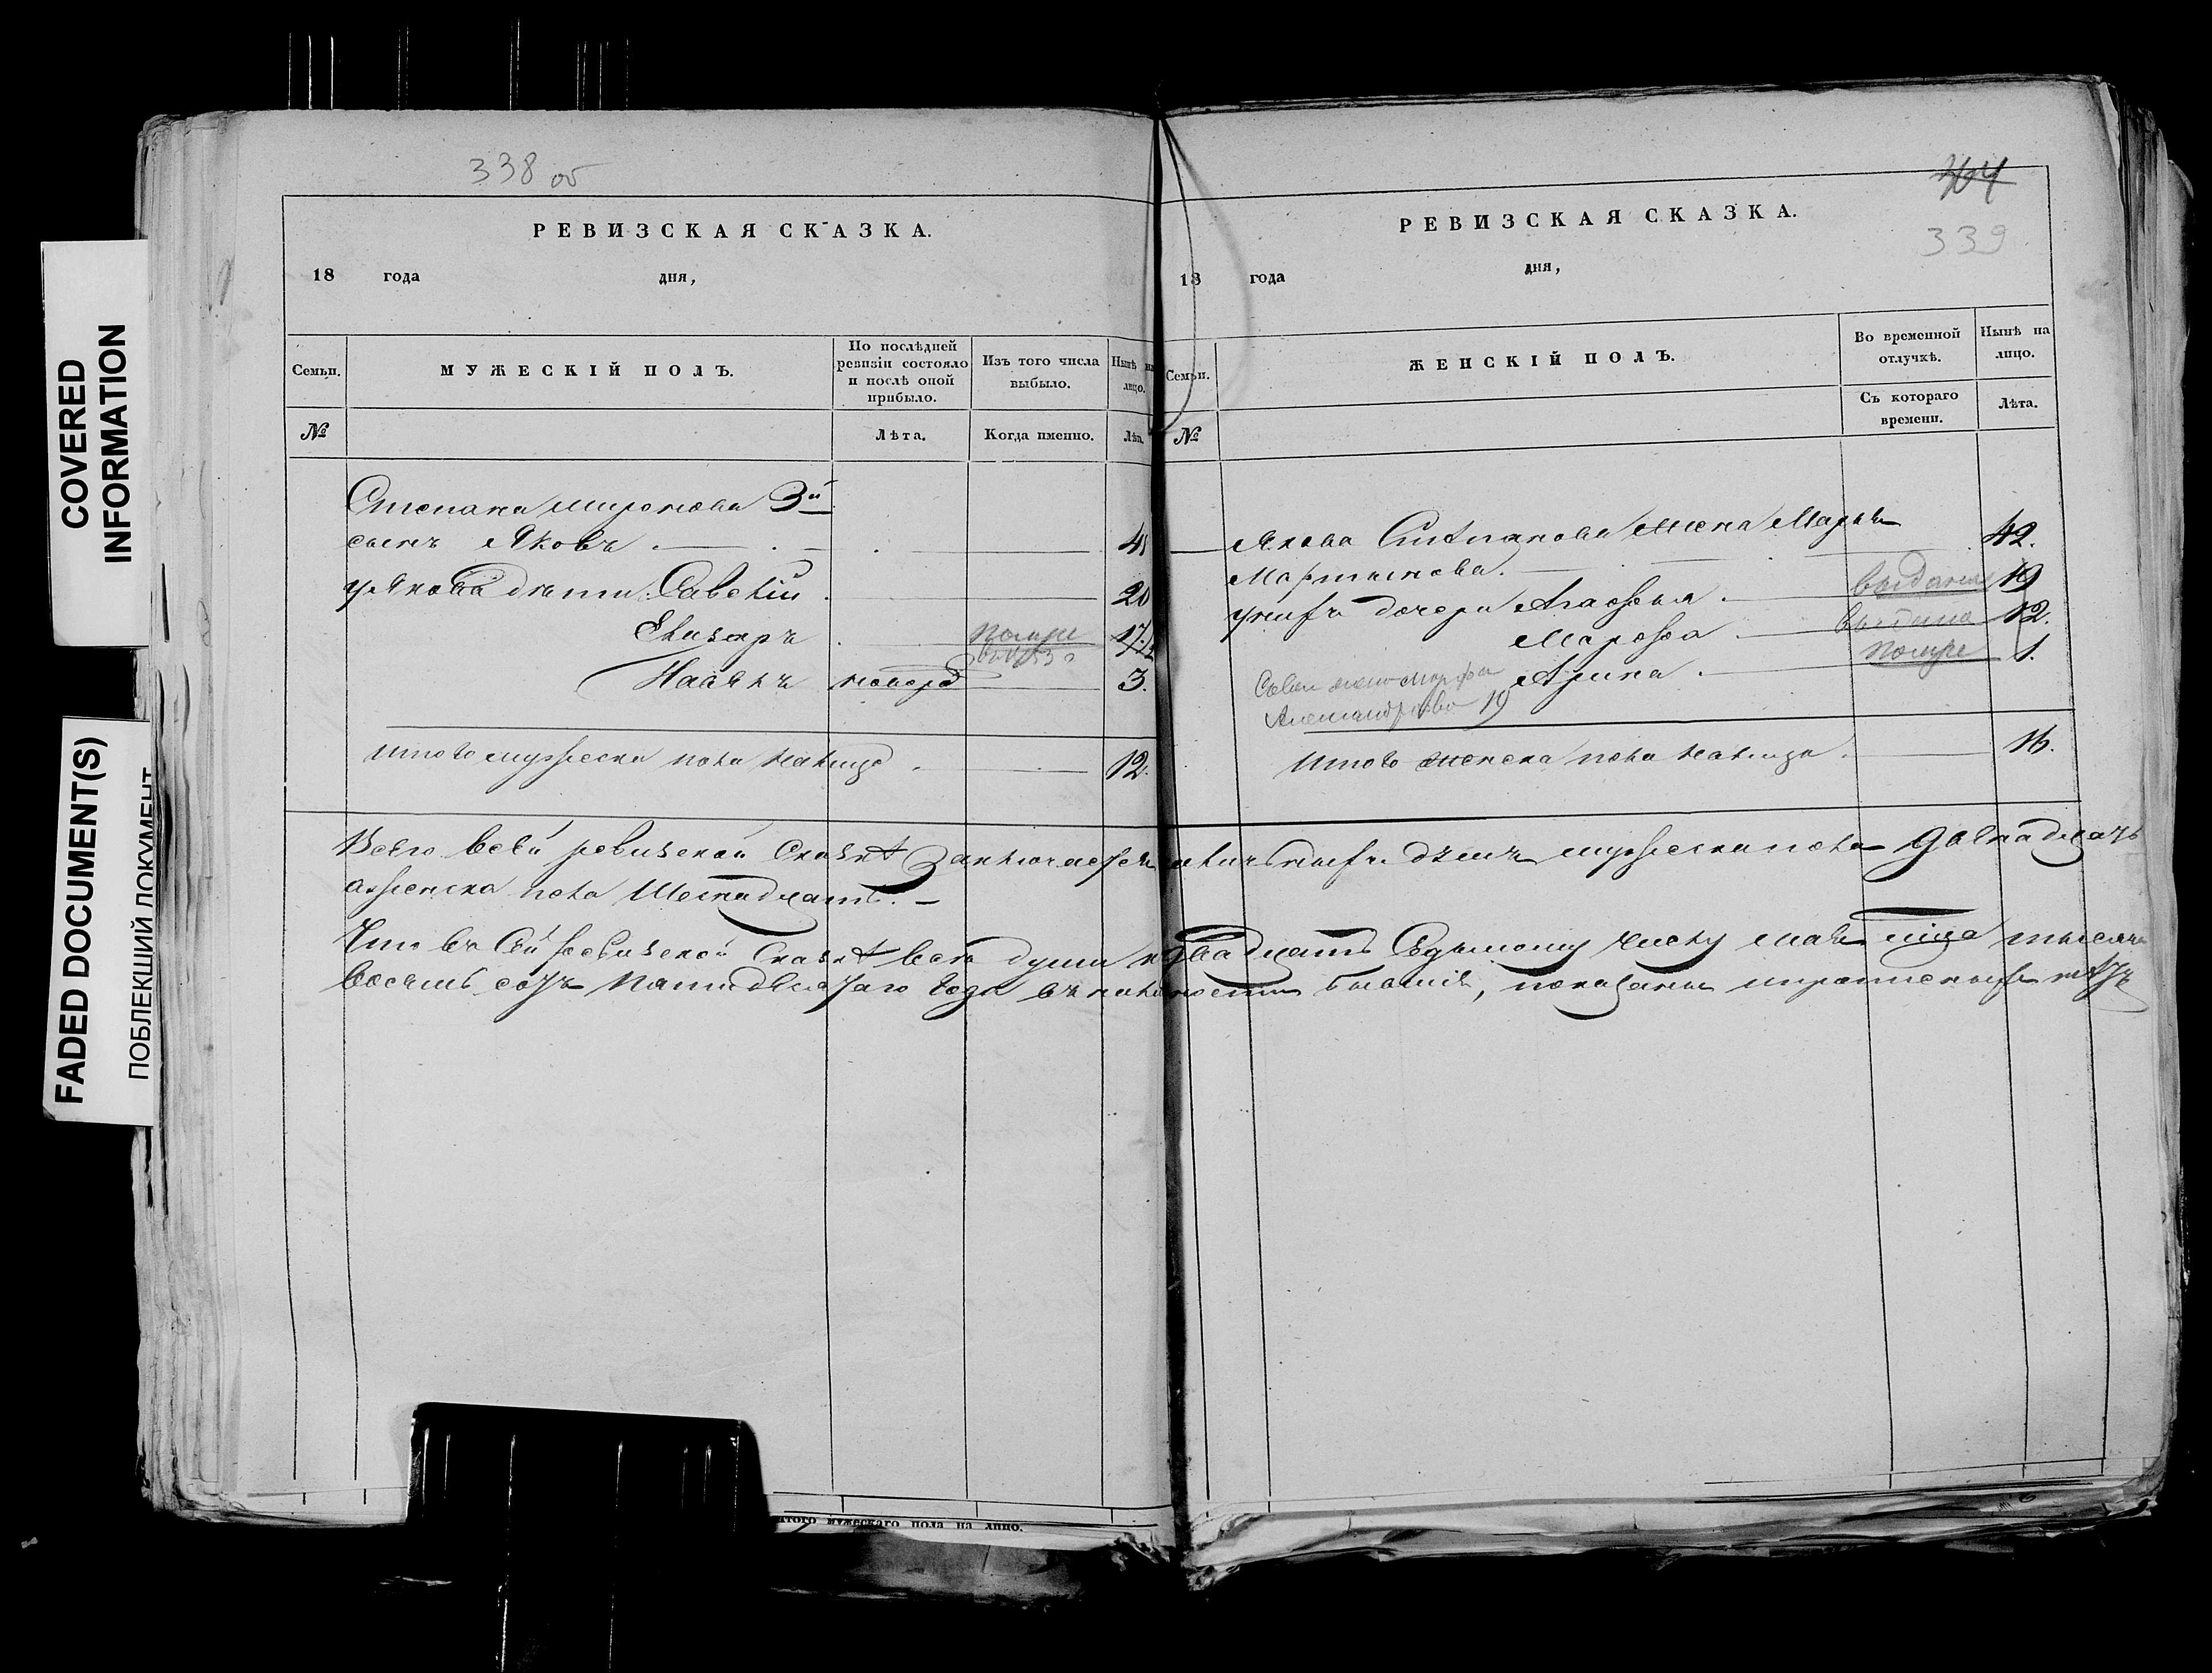 COVERED
INFORMATION
FADED DOCUMENT(S)
ПОБЛЕКШИЙ ДОКУМЕНТ
338 об
РЕВИЗСКАЯ СКАЗКА.
18 года дня,
Семьи.
МУЖЕСКІЙ ПОЛЪ.
По послѣдней
ревизіи состояло
и послѣ оной
прибыло.
Изъ того числа
выбыло.
Нынѣ на
лицо.
№
Лѣта.
Когда именно.
Лѣта.
Степана Миронова 3й
сынъ Яковъ 41
у Якова дѣти: Савелій 20
Елизаръ помре 17½
новорд 3.
Итого мужеска пола налицо 12.
итого мужескаго пола на лицо.
704
339
РЕВИЗСКАЯ СКАЗКА.
18 года дня,
Семьи.
ЖЕНСКІЙ ПОЛЪ.
Во временной
отлучкѣ.
Нынѣ на
лицо.
№
Съ котораго
времени.
Лѣта.
Якова Степанова жена Марья
Мартынова. 42.
у нихъ дочери Агафья выдана 19
Марфа выдана 12.
Арина помре 1.
Савел жена Марфа
Александрова 19
Итого женска пола налицо 16.
Всего всей ревизской сказкѣ заключается наличныхъ душъ мужеска пола двѣнадцать
а женска пола шеснадцать. —
Что въ сей ревизской сказкѣ всѣ души к двадцать седьмому числу мая мца тысяча
восемь сотъ пятидесятаго года въ наличности бывшіе, показаны и прописныхъ нѣтъ